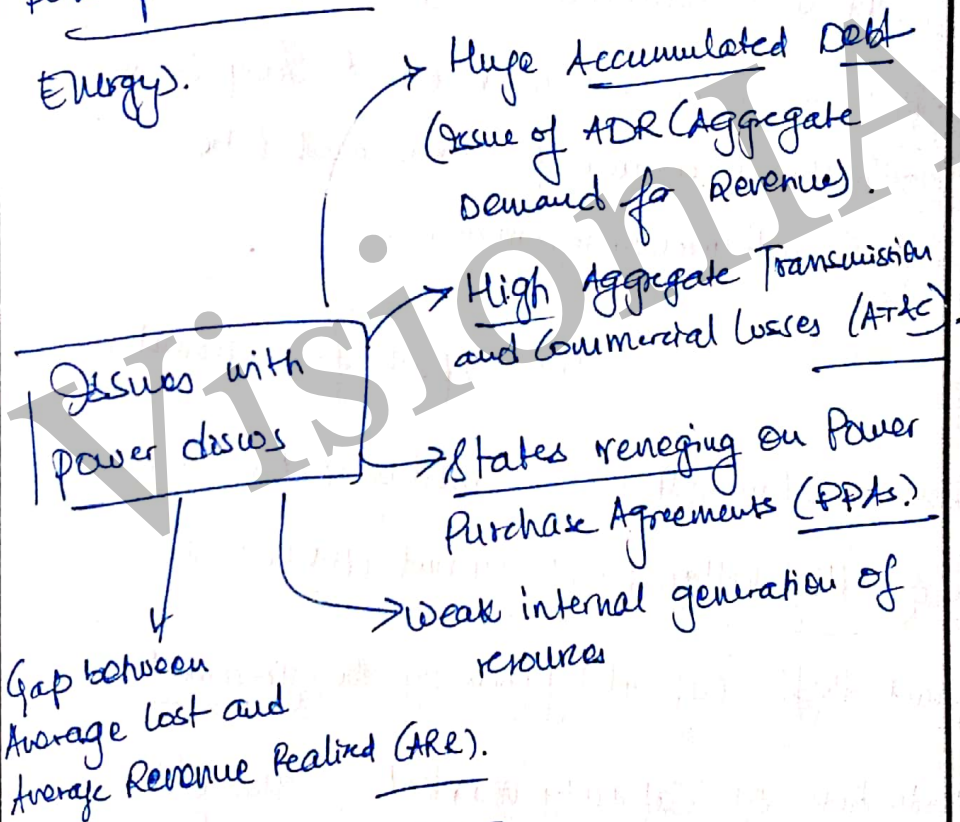 Energy).
Huge Accumulated Debt
(Issue of ADR (Aggregate
Demand for Revenue).
High Aggregate Transmission
and Commercial Losses (AT&C).
Issues with
power discos
States reneging on Power
Purchase Agreements (PPAs)
Weak internal generation of
resources
Gap between
Average Cost and
Average Revenue Realized (ARR).
VisionIA